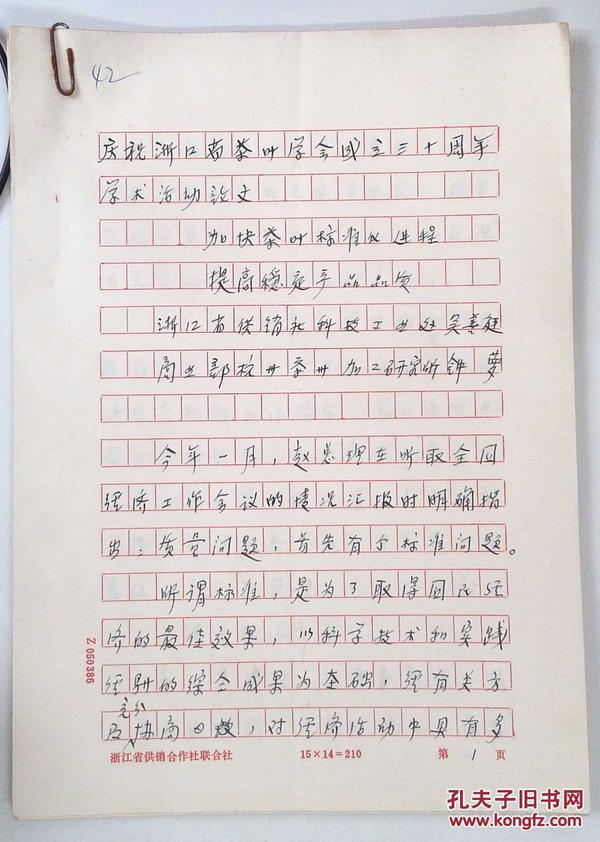 42
庆祝浙江省茶叶学会成立三十周年
学术活动论文
加快茶叶标准化进程
提高稳定产品品质
浙江省供销社科技工业处吴善庭
商业部杭州茶叶加工研究所钟萝
今年一月，赵总理在听取全国
经济工作会议的情况汇报时明确指
出：质量问题，首先有个标准问题。
所谓标准，是为了取得国民经
济的最佳效果，以科学技术和实践
经验的综合成果为基础，经有关方
充分
及协商 ，对经济活动中具有多
Z 050386
浙江省供销合作社联合社 15×14=210 第 1 页
孔夫子旧书网
www.kongfz.com